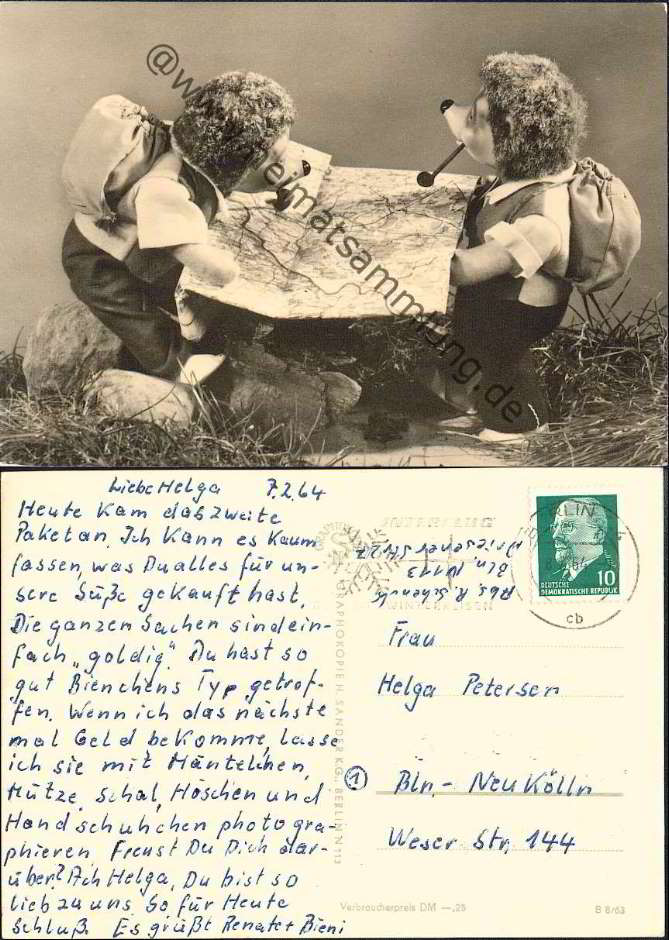 @www.heimatsammlung.de
Liebe Helga 7.2.64
Heute kam das zweite
Paket an. Ich kann es kaum
fassen, was Du alles für un-
sere Süße gekauft hast.
Die ganzen Sachen sind ein-
fach „goldig". Du hast so
gut Bienchens Typ getrof-
fen. Wenn ich das nächste
mal Geld bekomme, lasse
ich sie mit Mäntelchen,
Mütze, Schal, Höschen und
Handschuhchen photogra-
phieren. Freust Du Dich dar-
über? Ach Helga, Du bist so
lieb zu uns. So für Heute
Schluß. Es grüßt Renate + Bieni
GRAPHOKOPIE H. SANDER K.G., BERLIN N 113
Abs. R.
Bln. N 113
BERLIN
cb
WINTERREISEN
DEUTSCHE
DEMOKRATISCHE REPUBLIK
10
Frau
Helga Petersen
1
Bln.- Neukölln
Weser Str. 144
Verbraucherpreis DM —,25
B 8/63